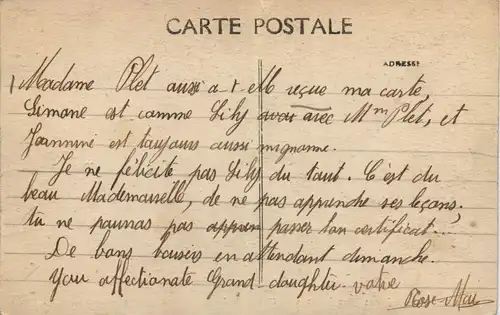 CARTE POSTALE
ADRESSE
Madame Plet aussi a-t-elle reçue ma carte,
Simone est comme Lily avoir avec Mm Plet, et
Jeannine est toujours aussi mignonne.
Je ne félicite pas Lily du tout. C'est du
beau Mademoiselle, de ne pas apprendre ses leçons,
tu ne pourras pas appren passer ton certificat...
De bons baisers en attendant dimanche.
Your affectionate Grand daughter votre
Rose Mai